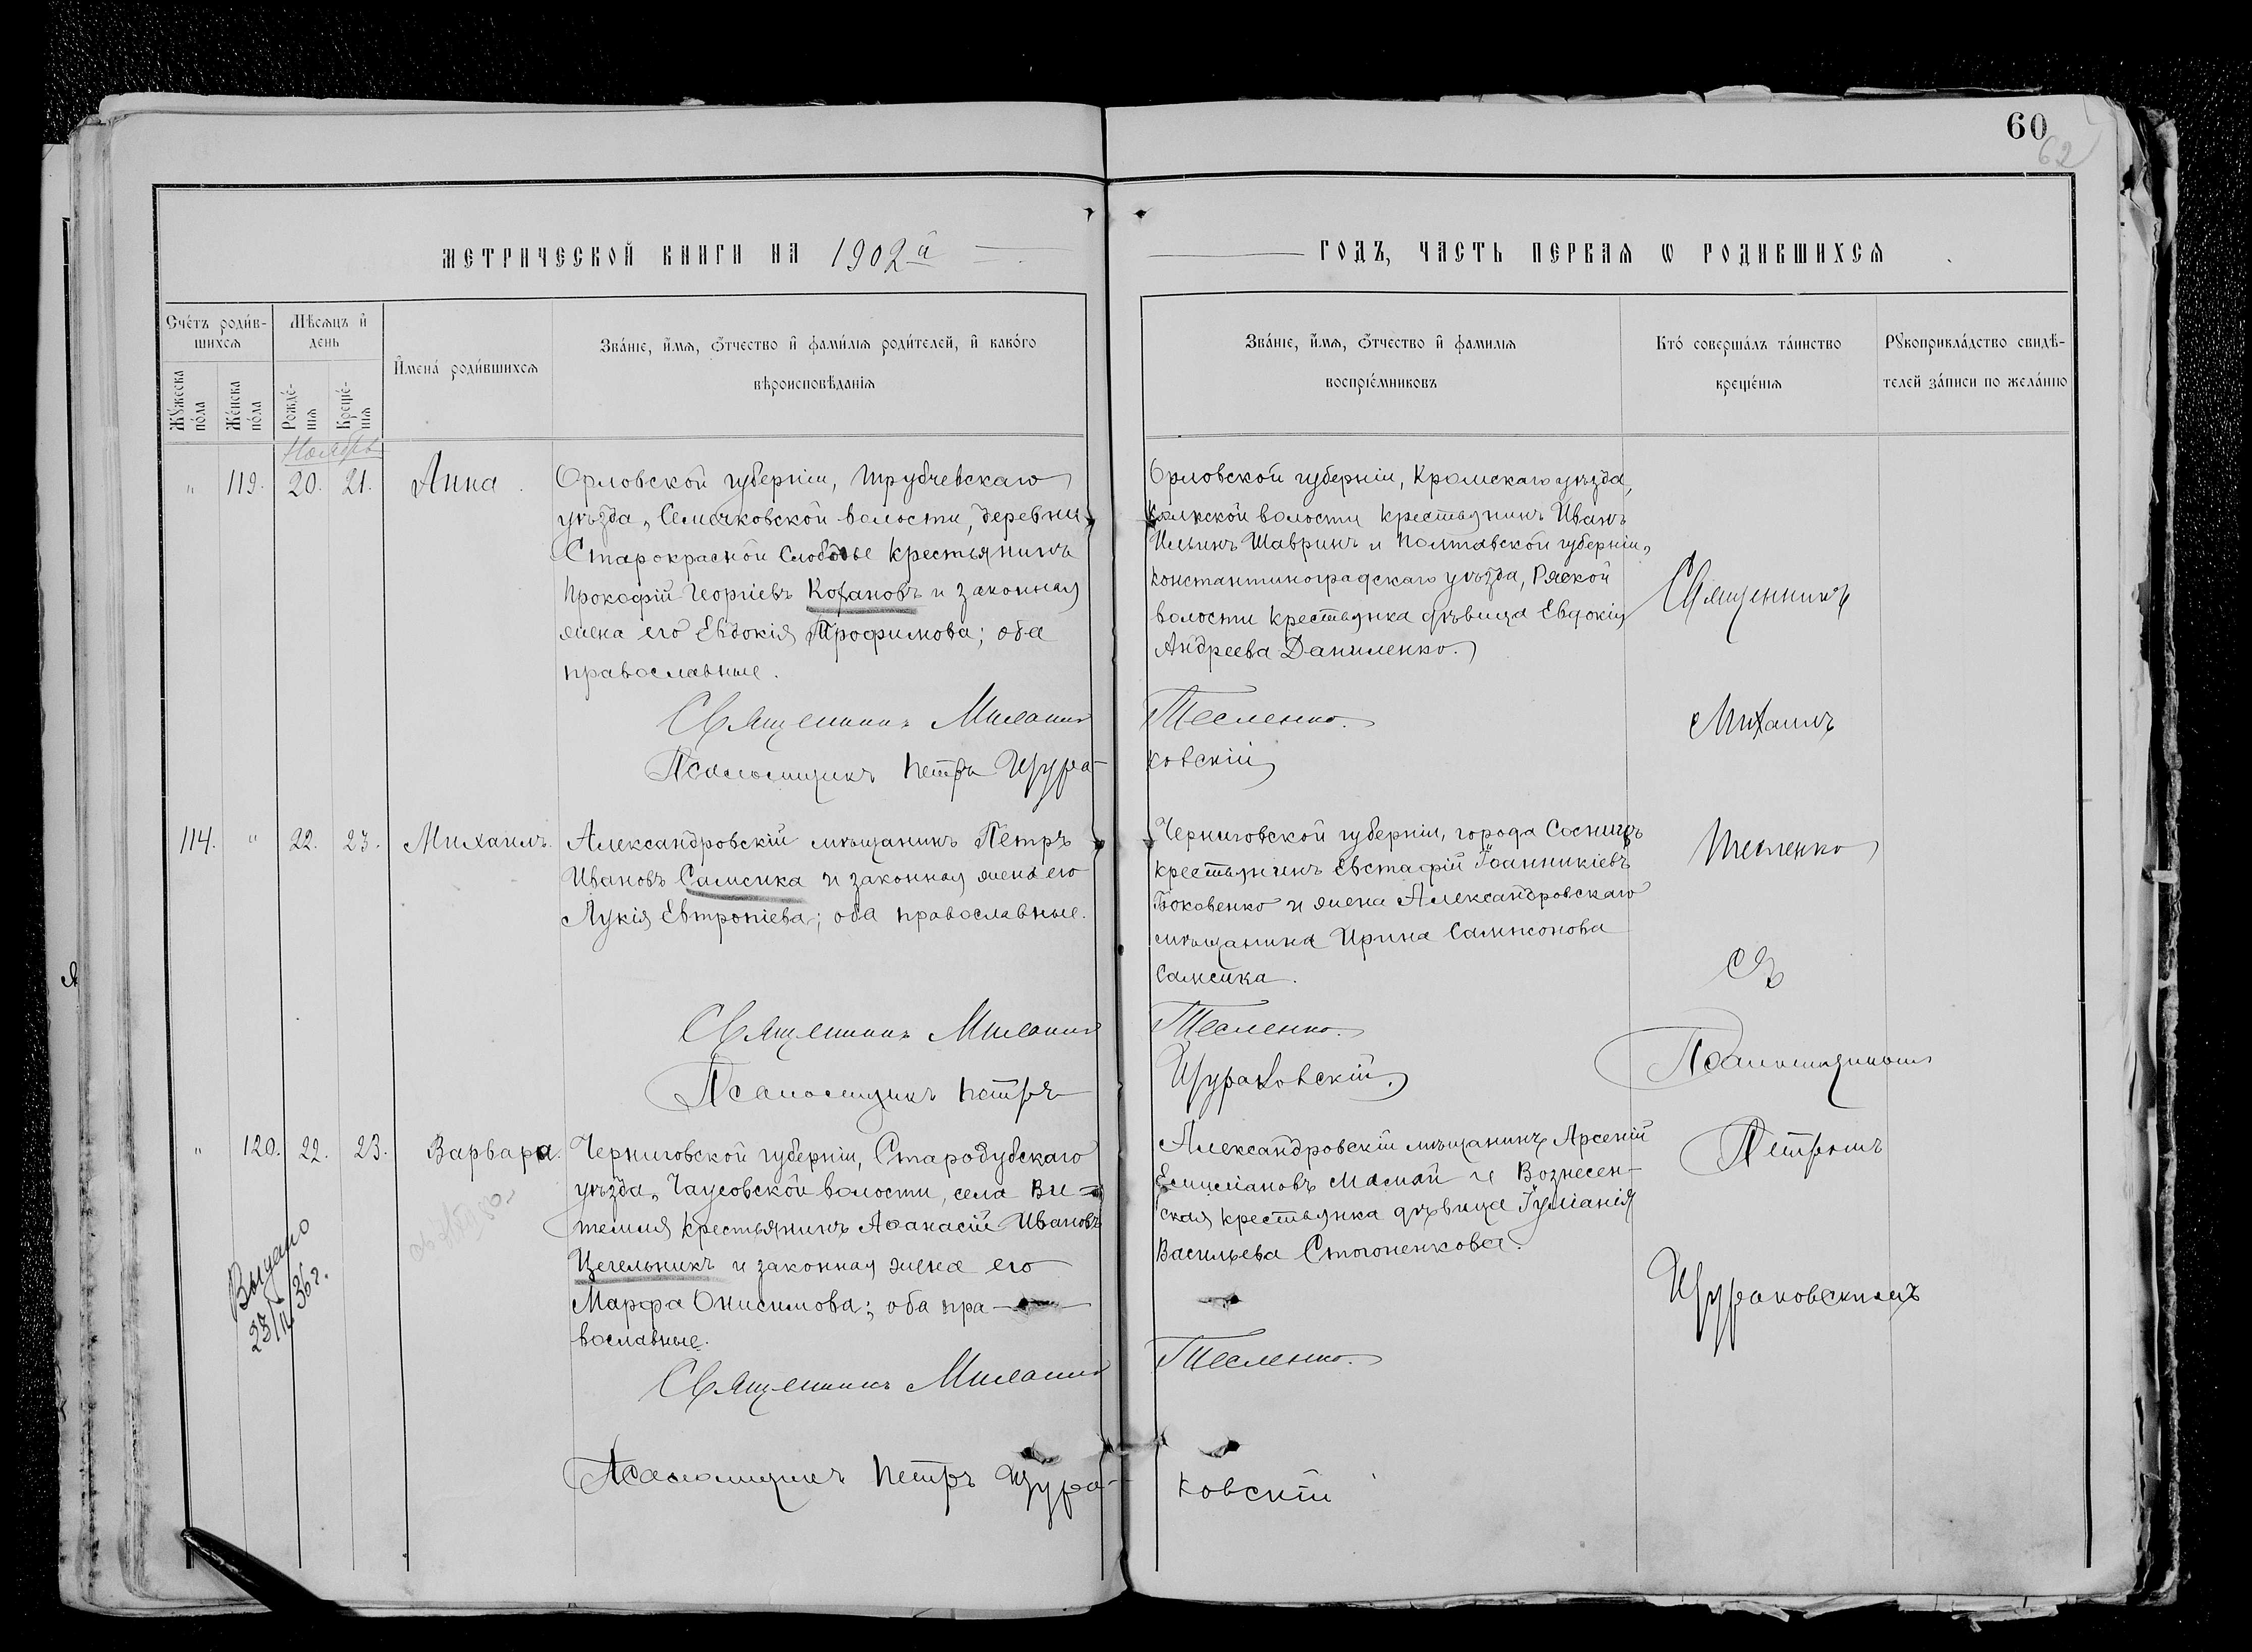 60
62
МЕТРИЧЕСКОЙ КНИГИ НА 1902й
ГОДЪ, ЧАСТЬ ПЕРВАЯ Ѡ РОДИВШИХСЯ
Счетъ родив-
шихся
Мѣсяцъ и
день
Имена родившихся
Званіе, имя, отчество и фамилія родителей, и какого
вѣроисповѣданія
Званіе, имя, отчество и фамилія
воспріемниковъ
Кто совершалъ таинство
крещенія
Рукоприкладство свидѣ-
телей записи по желанію
Мужеска
пола
Женска
пола
Рожде-
нія
Креще-
нія
Ноябрь
" 119. 20. 21. Анна.
Орловской губерніи, Трубчевскаго
уѣзда, Семячковской волости, деревни
Старокрасной Слободы крестьянинъ
Прокофій Георгіевъ Коханов и законная
жена его Евдокія Трофимова; оба
православные.
Священникъ Михаилъ Тесленко.
Псаломщикъ Петръ Щура-
ковскій
Орловской губерніи, Кромскаго уѣзда,
волости крестьянинъ Иванъ
Ильинъ Шавринъ и Полтавской губерніи,
Константиноградскаго уѣзда, Ряской
волости крестьянка дѣвица Евдокія
Андреева Даниленко.
Священникъ
Михаилъ
Тесленко
съ
Псаломщикомъ
Петромъ
Щураковскимъ
114. " 22. 23. Михаилъ.
Александровскій мѣщанинъ Петръ
Ивановъ Самсика и законная жена его
Лукія Евтропіева; оба православные.
Священникъ Михаилъ Тесленко.
Псаломщикъ Петръ Щураковскій.
Черниговской губерніи, города Сосницъ
крестьянинъ Евстафій Іоанникіевъ
Боковенко и жена Александровскаго
мѣщанина Ирина Сампсонова
Самсика.
" 120. 22. 23. Варвара.
Черниговской губерніи, Стародубскаго
уѣзда, Чаусовской волости, села Ви-
темля крестьянинъ Аѳанасій Ивановъ
Цегельникъ и законная жена его
Марфа Онисимова; оба пра-
вославные.
Священникъ Михаилъ Тесленко.
Псаломщикъ Петръ Щура-
ковскій
Александровскій мѣщанинъ Арсеній
Емиліановъ Мамай и Вознесен-
ская крестьянка дѣвица Іуліанія
Васильева Стогоненкова.
Выдано
23/II 36 г.